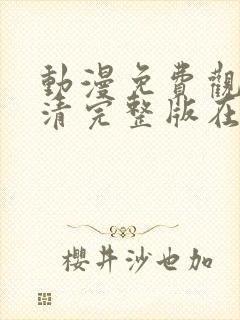 動漫免費觀
清完整版在
櫻井沙也加